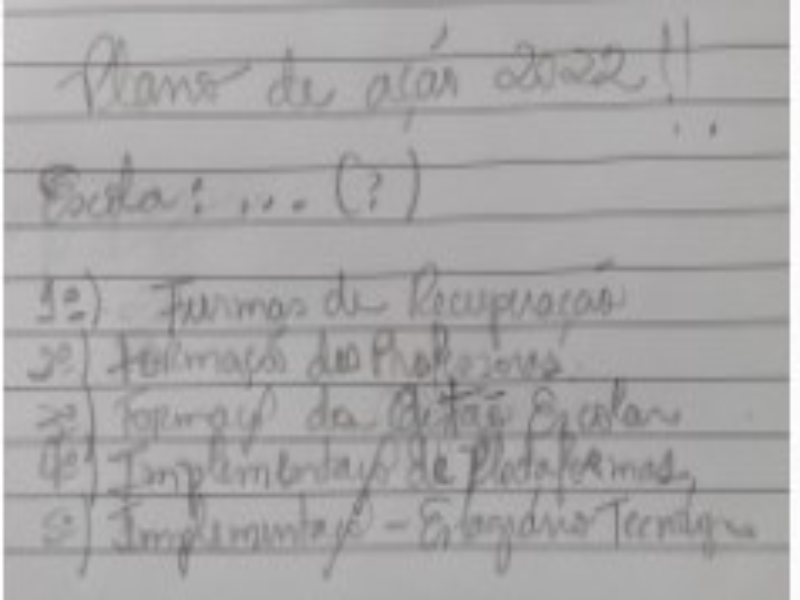 Plano de ação 2022!!
Escola: ... (?)
1º) Turmas de Recuperação
2º) Formação dos Professores
3º) Formaç da Gestão Escolar
4º) Implementaç de Plataformas,
5º) Implementaç - Estagiário